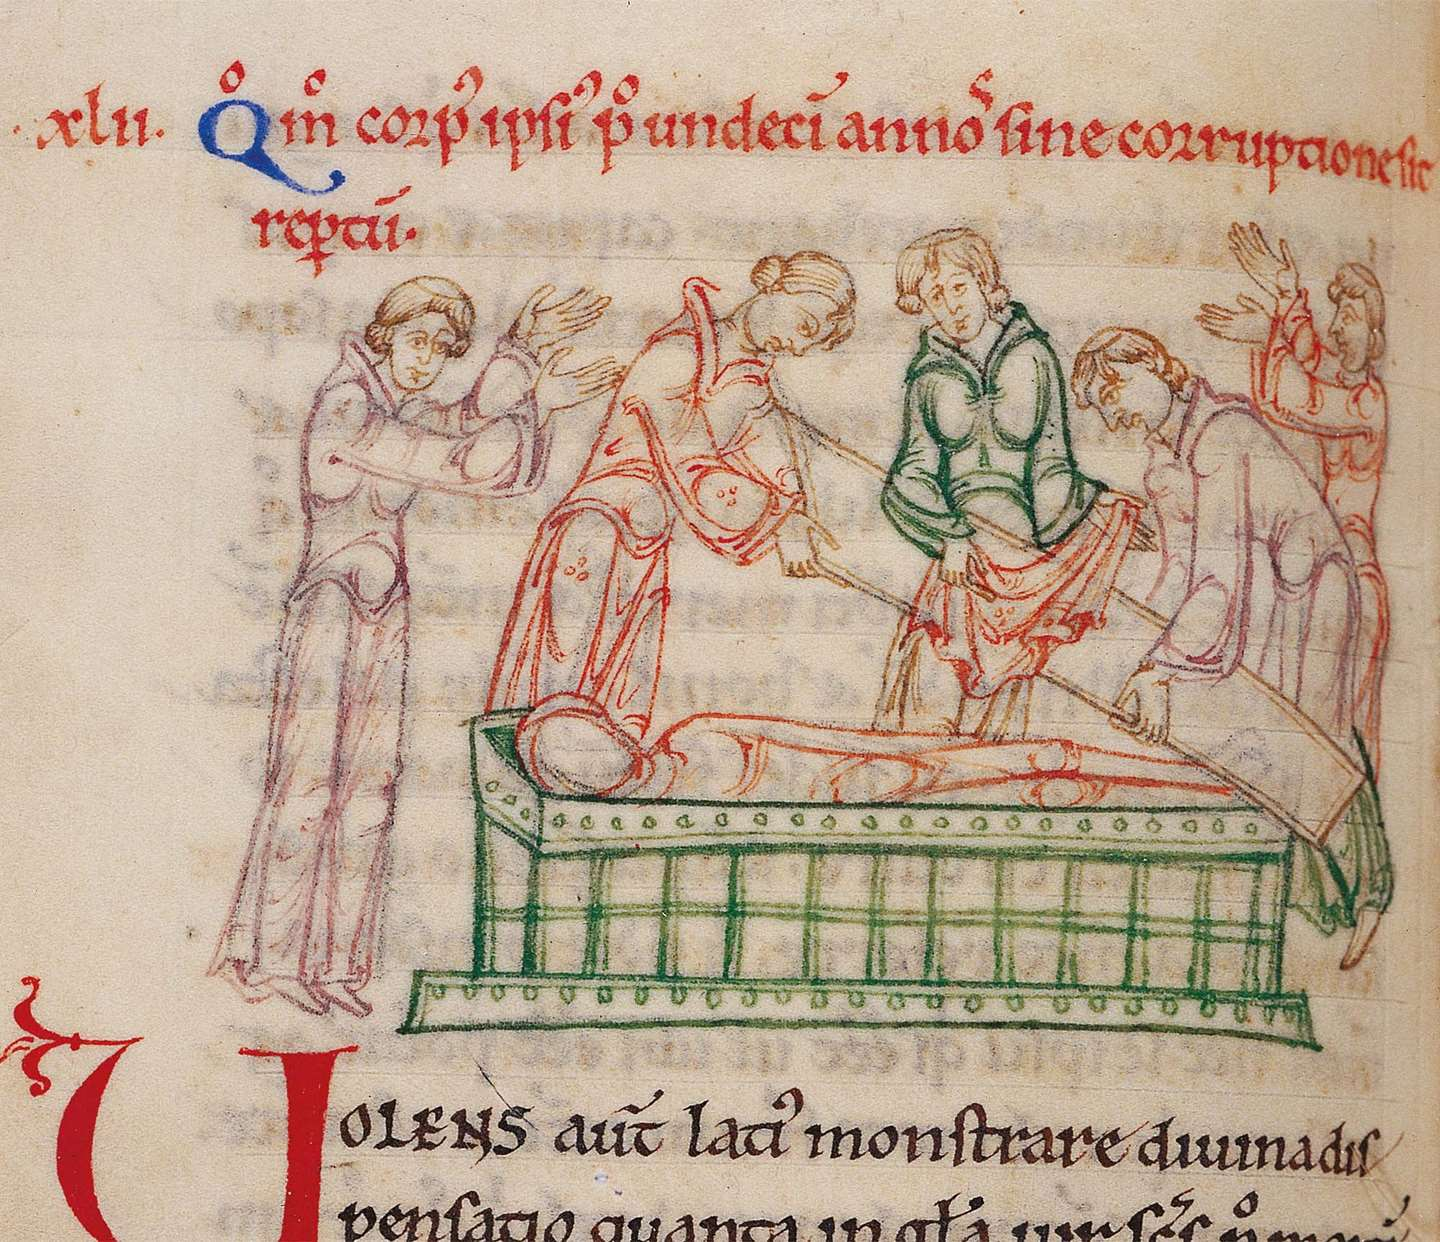 ·xlii· Qͦm̊ corpꝰ ipsiꝰ pͦ undeci̅ annoᷤ sine corruptione sit
rep̲tu̅·
VOLENS aut̅ latiꝰ monstrare diuina dis
pensatio quanta in gl̅a uir sc̅s